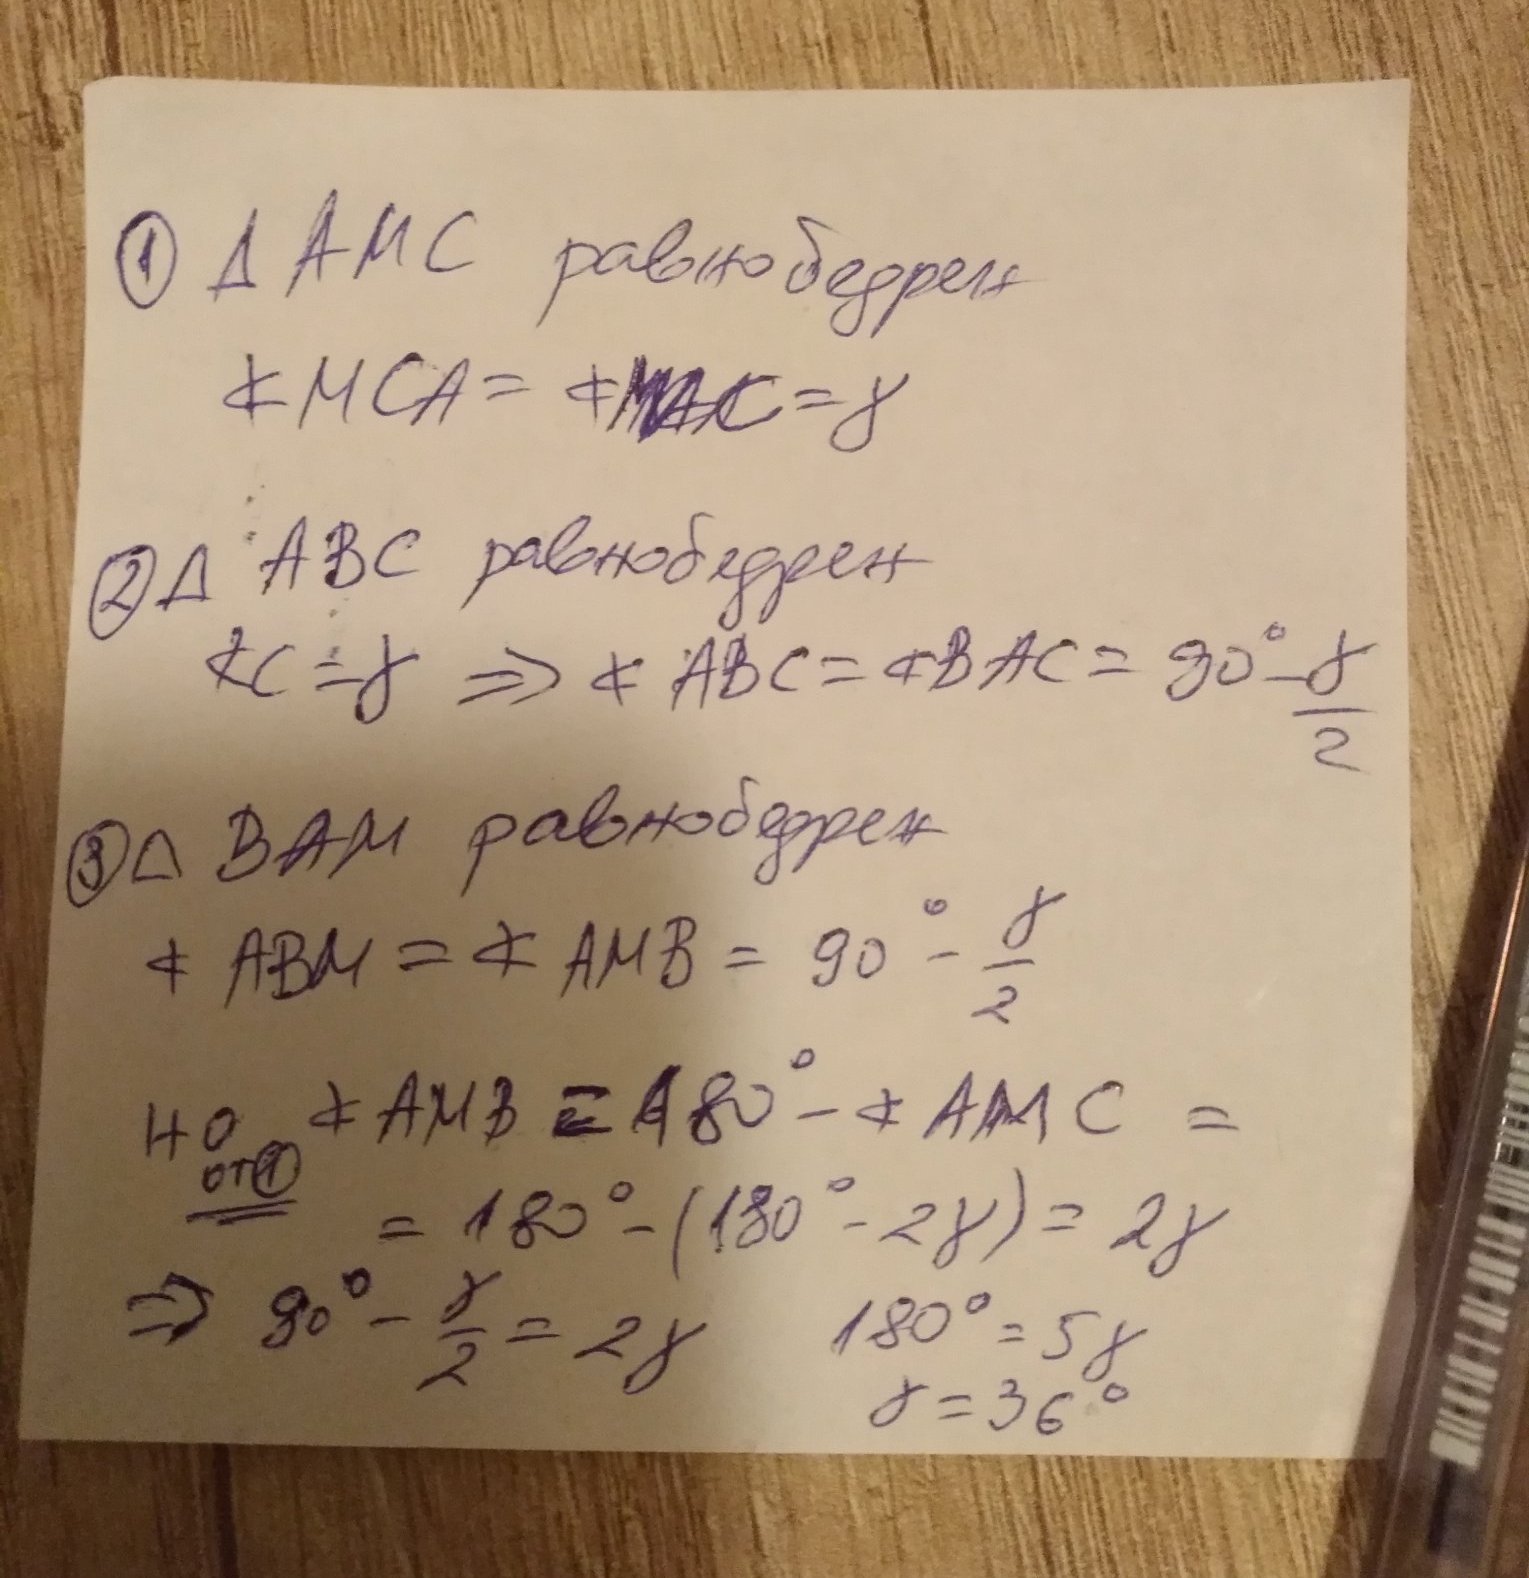 ① Δ AMC равнобедрен
∢MCA = ∢MAC = γ
② Δ ABC равнобедрен
∢C = γ ⇒ ∢ABC = ∢BAC = 90° - γ/2
③ Δ BAM равнобедрен
∢ABM = ∢AMB = 90° - γ/2
но ∢AMB = 180° - ∢AMC =
от ①
= 180° - (180° - 2γ) = 2γ
⇒ 90° - γ/2 = 2γ 180° = 5γ
γ = 36°